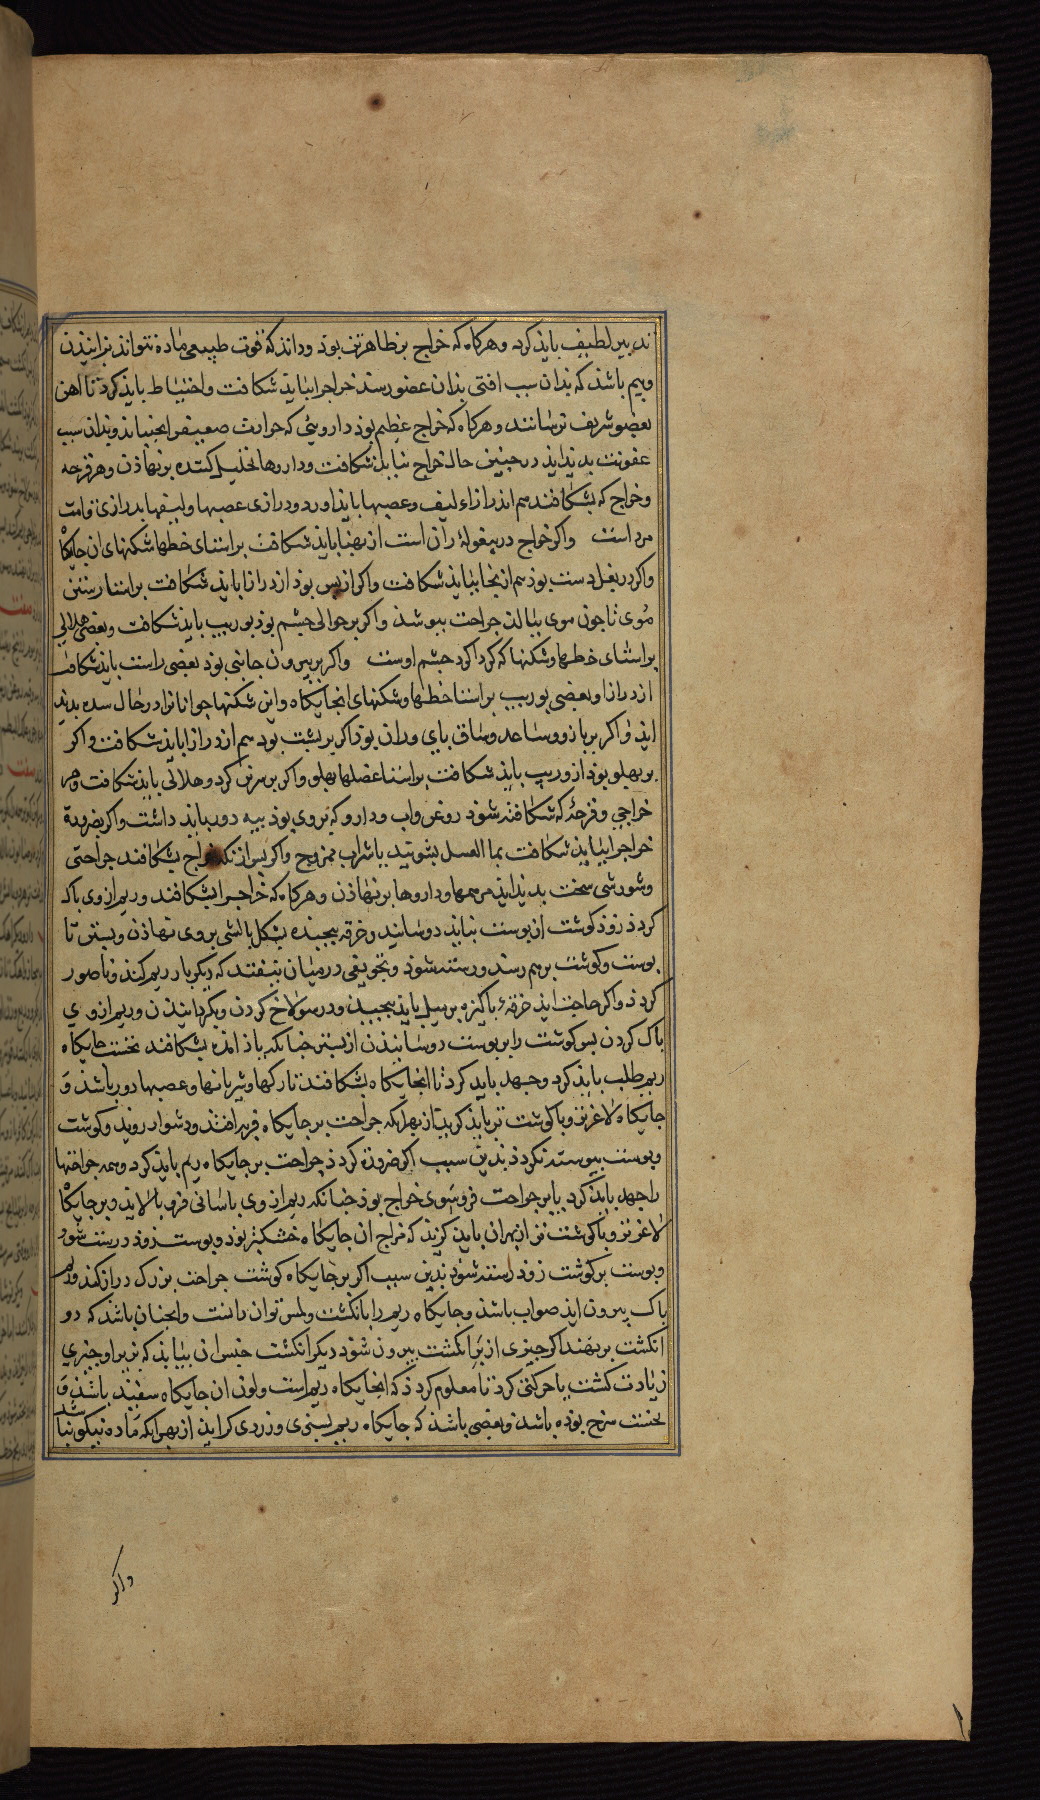 تدبیر لطیف بایذ کرد وهرکاه که خراج بزظاهرتن بوذ وداند که قوت طبیعی ماده نتواند بزانیذن
وبیم باشذ که بذان سبب افتی بذان عضو رسذ خراجرا ببایذ شکافت واحتیاط بایذ کرد تا اهن
بعضو شریف نرسانند وهرکاه که خراج عظیم بوذ دارویی که حرارت ضعیف را بجنباند وبذان سبب
عفونت بدیذ ایذ در جنین حال خراج نبایذ شکافت وداروهاء تحلیل کننده بر نهاذن وهر قرحه
وخراج که بشکافند هم از درازاء لیف وعصبها بایذ اورد ودرازی عصبها ولیفها بدرازی قامت
مرد است واکر خراج در بیغوله ران است از بهنا بایذ شکافت بر استای خطها شکنهای ان جایکاه
واکر در بغل دست بوذ هم از بهنا بایذ شکافت واکر از بس بوذ از درازا بایذ شکافت بر استا رستن
موی تا جون موی ببالذ جراحت ببوشذ واکر بر حوالی جشم بوذ بوریب بایذ شکافت وبعضی هلالی
بر استای خطها وشکنها که کرد اکرد جشم اوست واکر بر بیرون جانبی بوذ بعضی راست بایذ شکافت
از درازا وبعضی بوریب بر استا خطها وشکنهای انجایکاه واین شکنها جوانانرا در حال سده بدیذ
ایذ واکر بر بازو وساعد وساق بای وران بوذ اکر بر بشت بوذ هم از درازا بایذ شکافت واکر
بر بهلو بوذ از وریب بایذ شکافت بر استا عضلها بهلو واکر بر سرین کرد وهلالی بایذ شکافت وهر
خراجی وقرحهٔ که شکافته شوذ روغن واب ودارو که بروی بوذ بیه دور بایذ داشت واکر بضرورة
خراجرا ببایذ شکافت بما العسل بشویند یا شراب ممزوج واکر بس از انکه خراج بشکافند جراحتی
وشورشی سخت بدیذ ایذ مرهمها وداروها بر نهاذن وهرکاه که خراجرا بشکافند وریم از وی باک
کردذ زوذ کوشت از بوست نبایذ دوسانیذ وخرقه بیجیذه بشکل بالشی بروی نهاذن وبستن تا
بوست وکوشت برهم رسذ ورسته شوذ وتجویفی در میان نیفتد که دیکر بار ریم کند وناصور
کردذ واکر حاجت ایذ خرقهٔ باکیزه بر میل بایذ بیجیذ ودر سولاخ کردن وبکردانیذن وریم از وی
باک کردن بس کوشت را بر بوست دوسانیذن از بستن جنانکه یاذ امذه بشکافند نخست جایکاه
ریم طلب بایذ کرد وجهد بایذ کرد تا انجایکاه بشکافند تا رکها وشریانها وعصبها دور باشذ و
جایکاه لاغرتر وبا کوشت تر بایذ کریذ از بهر انکه جراحت بر جایکاه فربه افتذ ودشوار رویذ وکوشت
وبوست بیوسته نکردذ بذین سبب اکر ضرورة کردذ جراحت بر جایکاه ریم بایذ کرد وهمه جراحتها
را جهد بایذ کرد با بر جراحت فروسوی خراج بوذ جنانکه ریم از وی باسانی فروذ بالاید وبر جایکاه
لاغرتر وباکوشت تر از بهر ان بایذ کزیذ که مزاج ان جایکاه خشکتر بوذ وبوست زوذ درست شوذ
وبوست بر کوشت زوذ رسته شوذ بذین سبب اکر بر جایکاه کوشت جراحت بزرک دراز کند وریم
باک بیرون ایذ صواب باشذ وجایکاه ریم را بانکشت ولمس توان دانست وانجنان باشذ که دو
انکشت بر نهند اکر جیزی از زیر انکشت بیرون شوذ دیکر انکشت جنس ان بیابذ که بزیر او جیزی
زیادت کشت یا حرکتی کرد تا معلوم کردذ که انجایکاه ریم است ولون ان جایکاه سفید باشذ و
نخست سرخ بوذه باشذ وبعضی باشذ که جایکاه ریم بسبزی وزردی کراید از بهر انکه ماده نیکو نباشد
واکر